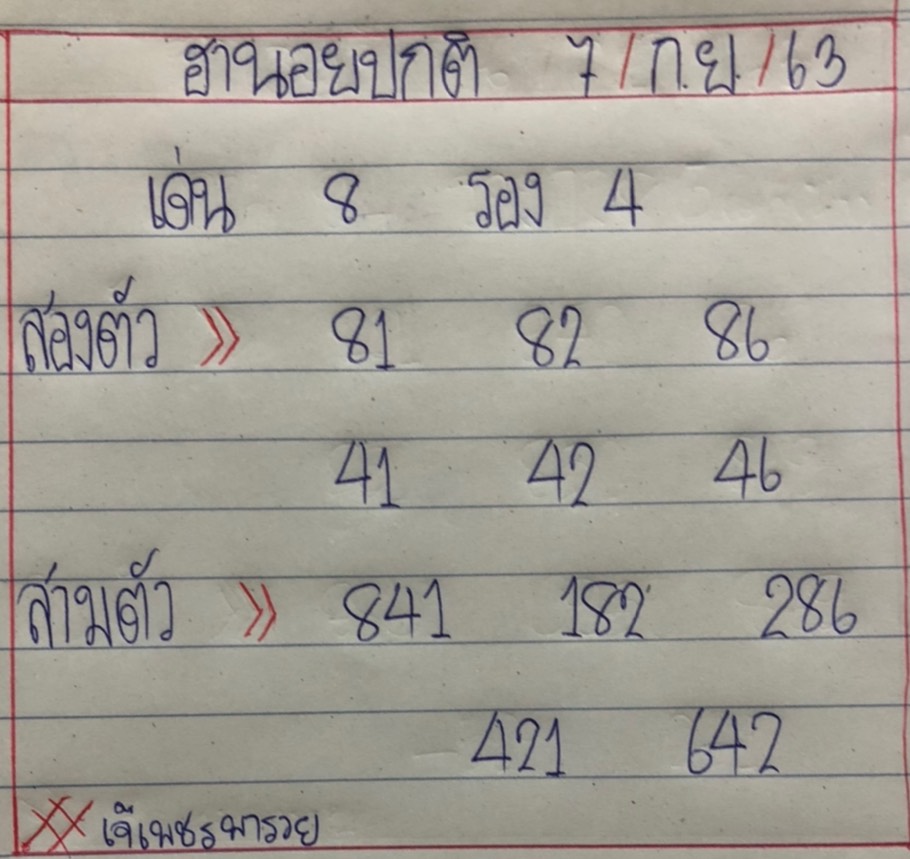 ฮานอยปกติ 7/ก.ย./63
เด่น 8 รอง 4
สองตัว » 81 82 86
41 42 46
สามตัว » 841 182 286
421 642
XX เจ๊เพชรพารวย